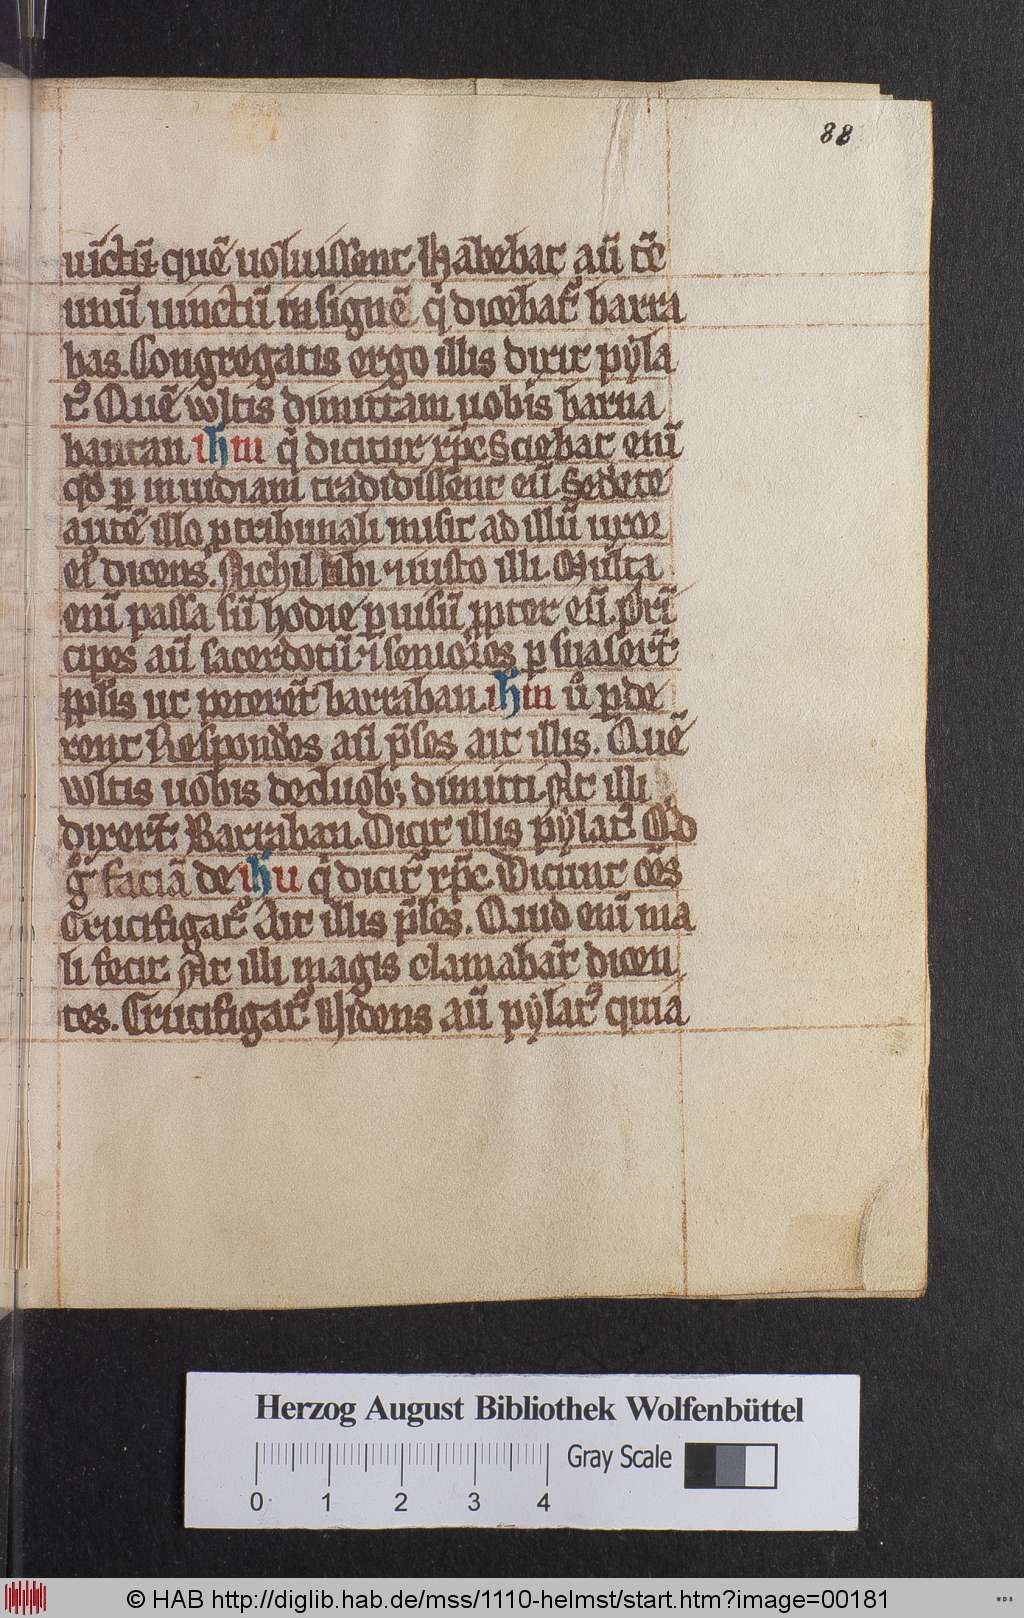 88
uīctū quē uoluissent. Habebat aū tc̄
unū uinctū insignē q̄ dicebat᷒ barra
bas. Congregatis ergo illis dixit pyla
t᷒ Quē wltis dimittam uobis barra
ban an ihm q̄ dicitur xp̄c Sciebat enī
qd̄ ꝑ inuidiam tradidissent eū. Sedete
autē illo ꝓ tribunali misit ad illū uxor
ei᷒ dicens. Nichil tibi ⁊ iusto illi. Multa
enī passa sū hodie ꝑ uisū ꝓpter eū. Pri̅
cipes aū sacerdotū ⁊ seniores ꝑ suaser̄t
ppl̄is ut peterēt barraban. ihm ů ꝑde
rent Respondēs aū p̄ses ait illis. Quē
wltis uobis de duob; dimitti. At illi
dixer̄t. Barraban. Dicit illis pylat᷒ Qd
g̊ faciā de ihu q̄ dicit᷒ xp̄c. Dicunt om̄s
Crucifigat᷒ Ait illis p̄ses. Quid enī ma
li fecit. At illi magis clamabāt dicen
tes. Crucifigat᷒ Uidens aū pylat᷒ quia
Herzog August Bibliothek Wolfenbüttel
Gray Scale
0 1 2 3 4
© HAB http://diglib.hab.de/mss/1110-helmst/start.htm?image=00181